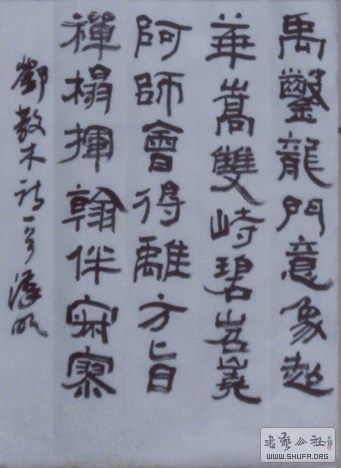 禹鑿龍門意象超
華嵩雙峙碧岧嶤
阿師會得離方旨
禪榻揮翰伴寂寥
鄧散木詩一首
書藝公社
WWW.SHUFA.ORG